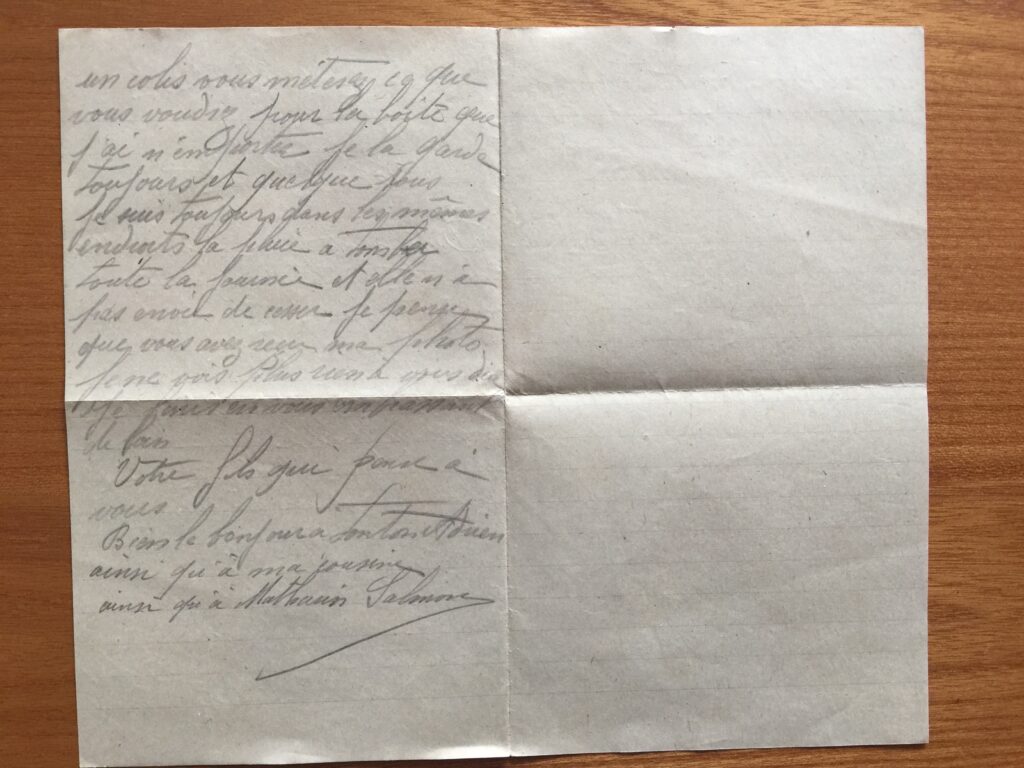 un colis vous méterez ce que
vous voudrez pour la boite que
j'ai n'emporter je la garde
toujours et quelque sous
je suis toujours dans les mêmes
endroits la pluie a tomber
toute la journée et elle n'a
pas envoi de cesser je pense
que vous avez recu ma photo
je ne vois plus rien a vous dire
je finis en vous embrassant
de loin
Votre fils qui pense à
vous
Bien le bonjour a tonton Adrien
ainsi qu'à ma cousine
ainsi qu'à Mathurin Salmon